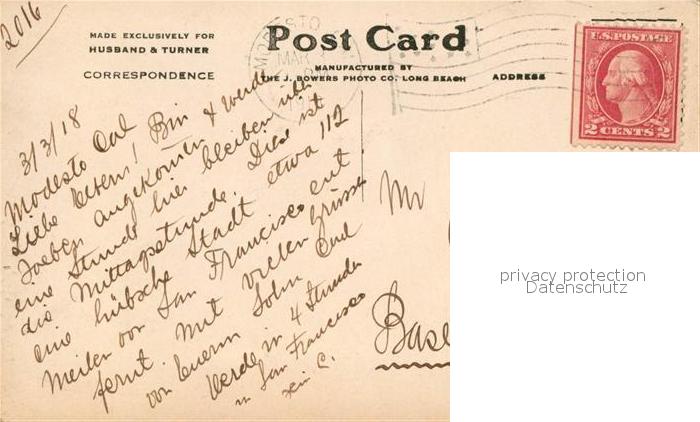 2016
MADE EXCLUSIVELY FOR
HUSBAND & TURNER
CORRESPONDENCE
Post Card
MANUFACTURED BY
THE J. BOWERS PHOTO CO. LONG BEACH
ADDRESS
MODESTO
MAR
U.S. POSTAGE
2 CENTS 2
3/3/18
Modesto Cal
Liebe Eltern! Bin
soeben angekommen & werde
eine Stunde hier bleiben über
die Mittagsstunde. Dies ist
eine hübsche Stadt etwa 112
Meilen von San Francisco ent
fernt. Mit vielen Grüssen
von Euerm John Carl
Werde in 4 Stunden
in San Francisco
sein C.
Mr
Base
privacy protection
Datenschutz